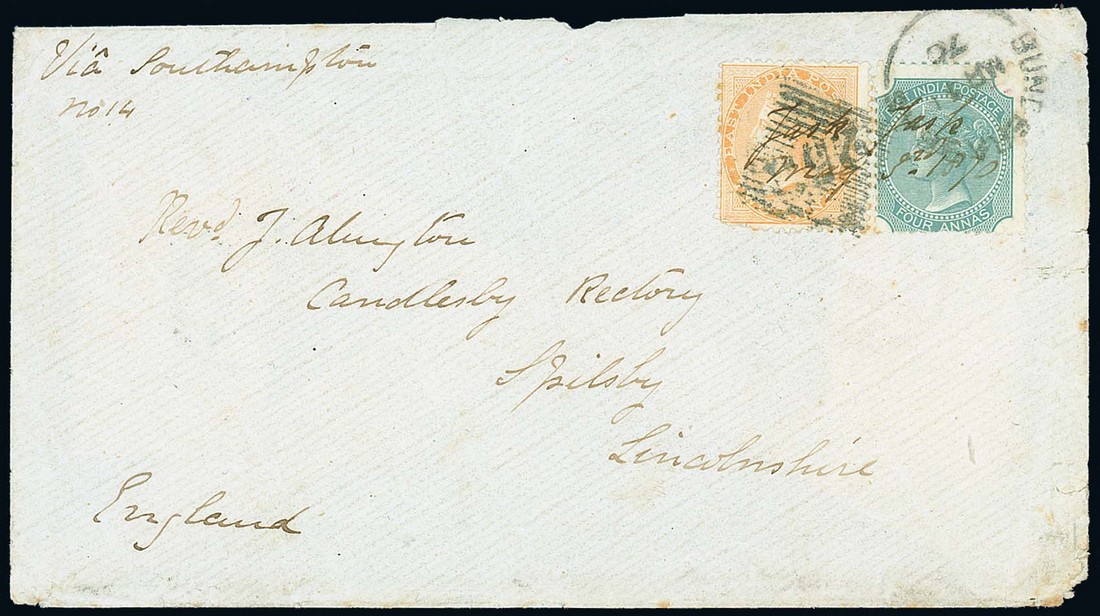 Viâ Southampton
No 14
EAST INDIA PO
INDIA POSTAGE
FOUR ANNAS
BUND
70
Revd. J. Alington
Candlesby Rectory
Spilsby
Lincolnshire
England